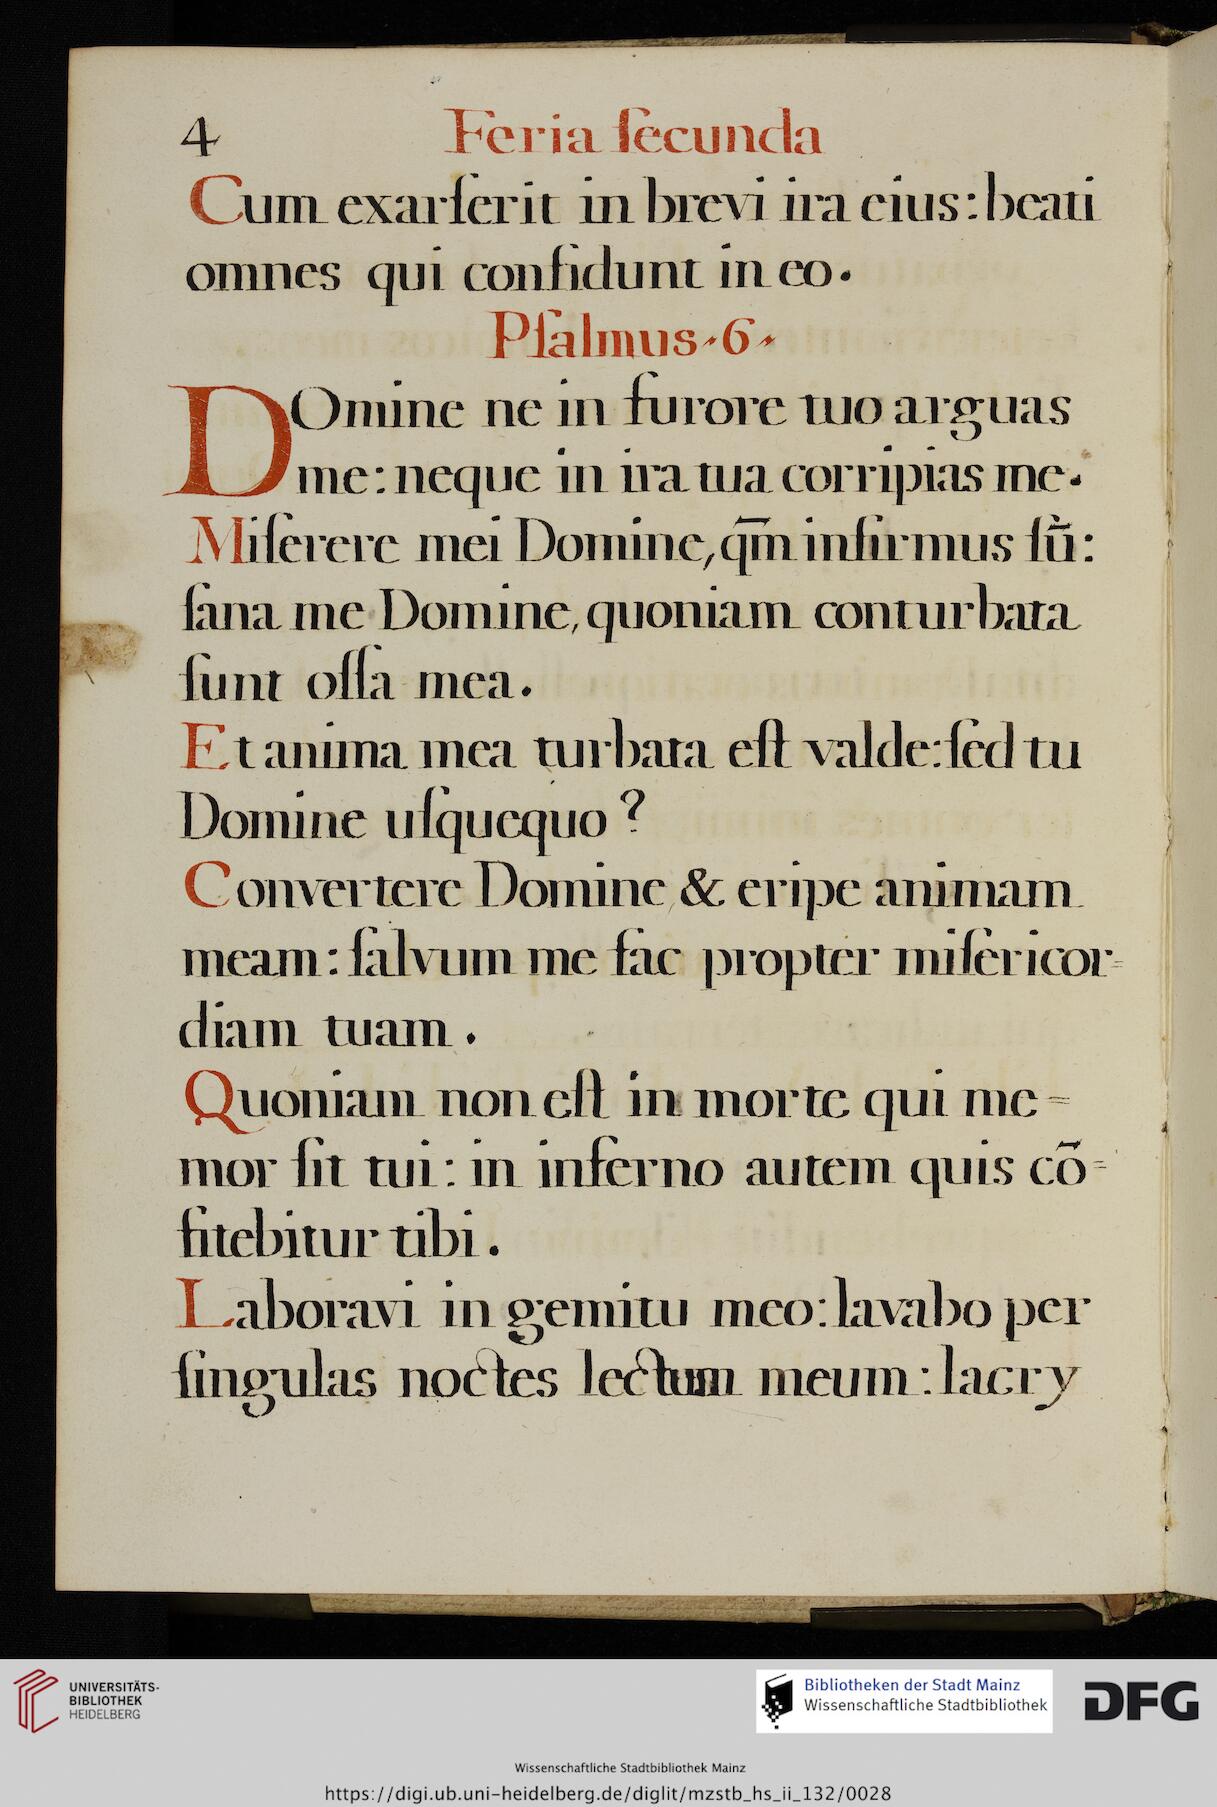 4 Feria ſecunda
Cum exarſerit in brevi ira eius: beati
omnes qui confidunt in eo.
Pſalmus. 6.
DOmine ne in furore tuo arguas
me: neque in ira tua corripias me.
Miſerere mei Domine, qm̄ infirmus ſũ:
ſana me Domine, quoniam conturbata
ſunt oſſa mea.
Et anima mea turbata eſt valde: ſed tu
Domine uſquequo?
Convertere Domine, & eripe animam
meam: ſalvum me fac propter miſericor=
diam tuam.
Quoniam non eſt in morte qui me=
mor ſit tui: in inferno autem quis cõ=
fitebitur tibi.
Laboravi in gemitu meo: lavabo per
ſingulas noctes lectum meum: lacry
UNIVERSITÄTS-
BIBLIOTHEK
HEIDELBERG
Bibliotheken der Stadt Mainz
Wissenschaftliche Stadtbibliothek
DFG
Wissenschaftliche Stadtbibliothek Mainz
https://digi.ub.uni-heidelberg.de/diglit/mzstb_hs_ii_132/0028